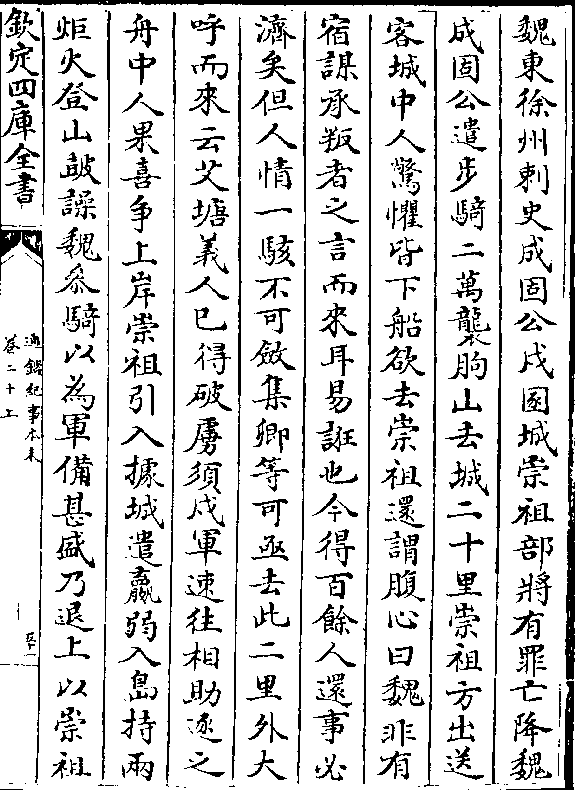 魏東徐州刺史成固公戍圂城崇祖部將有罪亡降魏
成固公遣步騎二萬襲朐山去城二十里崇祖方出送
客城中人驚懼皆下船欲去崇祖還謂腹心曰魏非有
宿謀承叛者之言而來耳易誑也今得百餘人還事必
濟矣但人情一駭不可斂集卿等可亟去此二里外大
呼而來云艾塘義人已得破虜須戍軍速往相助逐之
舟中人果喜爭上岸崇祖引入據城遣羸弱入島持兩
炬火登山鼓譟魏參騎以為軍備甚盛乃退上以崇祖
欽定四庫全書
通鑑紀事本末
卷二十上